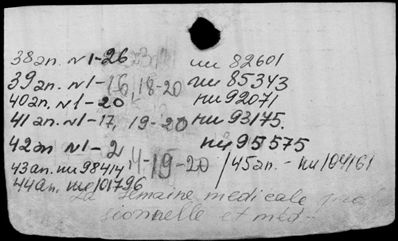 38an. N1-26 nu 82601
39an. N1-16,18-20 nu 85343
40an. N1-20 nu 92071
41an. N1-17, 19-20 nu 93175.
42an N1-2 nu 95575
43an. nu 98414 4-19-20 /45an. - nu 104161
44an. nu 101796
La semaine medicale
sionnelle et med-